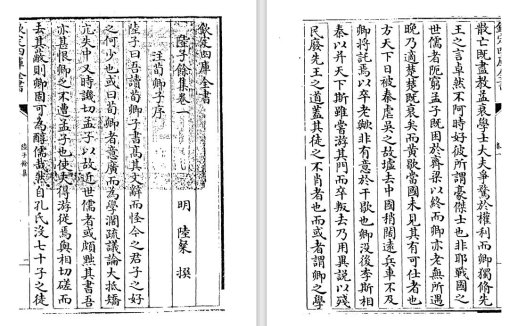 欽定四庫全書
陸子餘集卷一
明 陸粲 撰
注荀卿子序
陸子曰吾讀荀卿子書高其文辭而怪今之君子之好
之何少也或曰荀卿者意廣而為學濶疏議論大抵矯
亢失中又時譏切孟子以故近世儒者或頗黜其書吾
亦甚恨卿之不遭孟子也使夫得游從焉與相切磋而
去其蔽則卿固可為醇儒哉自孔氏沒七十子之徒
欽定四庫全書
陸子餘集
散亡既盡教益衰學士大夫爭騖於權利而卿獨脩先
王之言卓然不阿時好彼所謂豪傑士也非耶戰國之
世儒者阨窮孟子既困於齊梁以終而卿亦老無所遇
晚乃適楚楚既衰矣而黄歇當國未見其有可仕者也
方天下日被秦虐吳之故墟去中國稍闊逺兵車不及
卿將託焉以卒老歟非有意於干歇也卿沒後李斯相
秦以并天下斯雖嘗游其門而卒叛去乃用異說以殘
民廢先王之道蓋其徒之不肖者也而或者謂卿之學